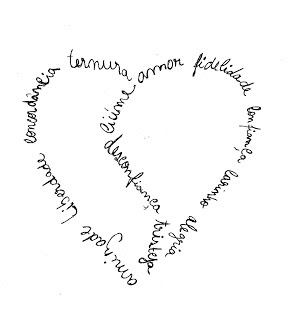 amizade liberdade concordância ternura amor fidelidade confiança carinho alegria
ciúme desconfiança tristeza